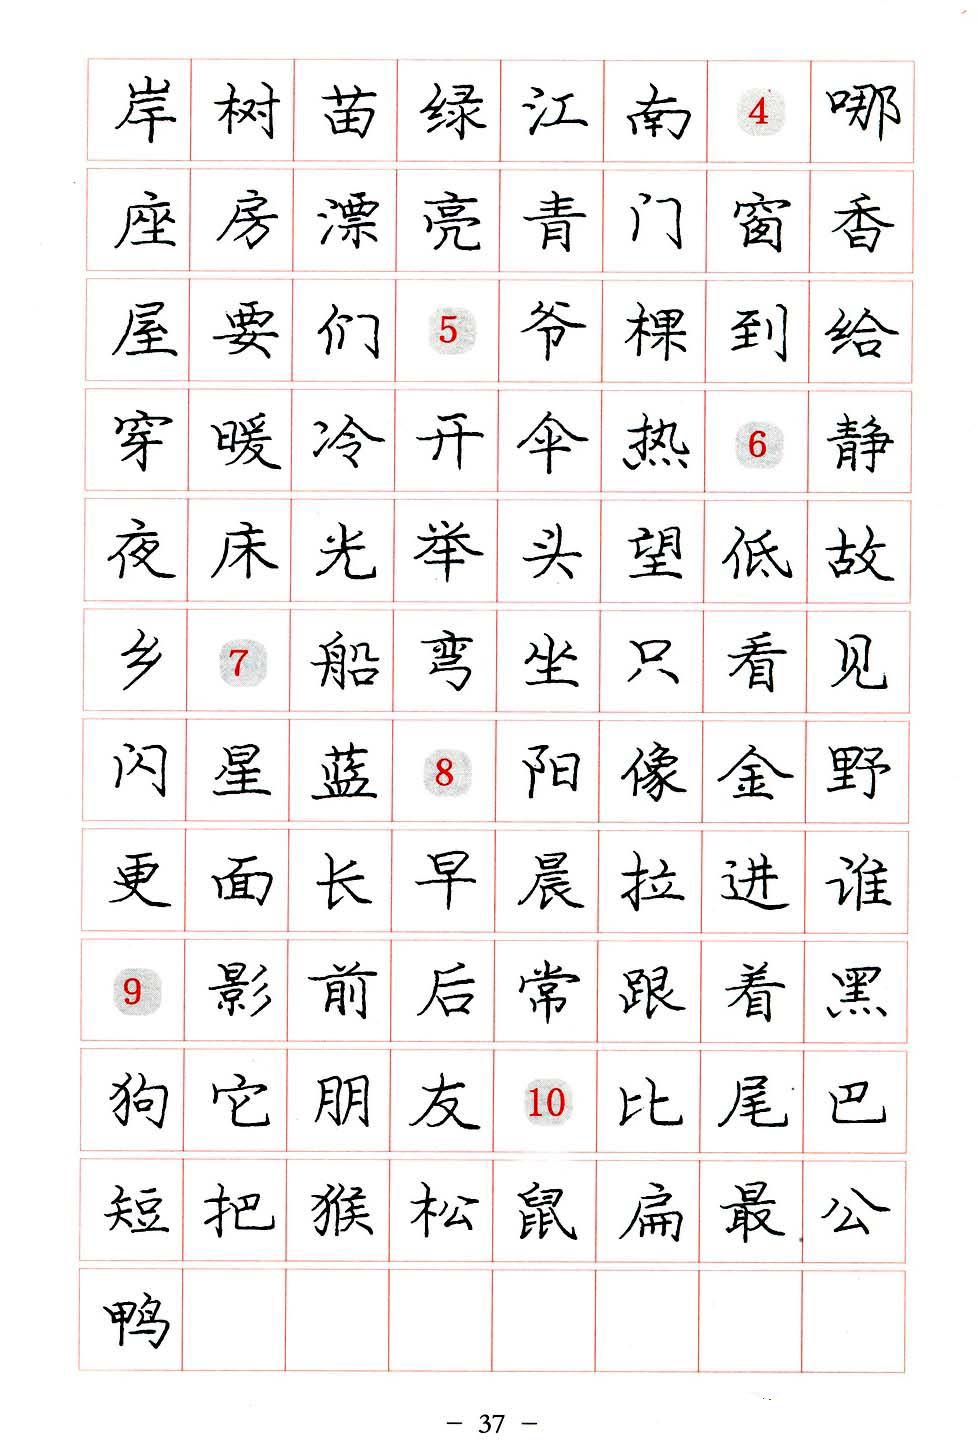 岸 树 苗 绿 江 南 4 哪
座 房 漂 亮 青 门 窗 香
屋 要 们 5 爷 棵 到 给
穿 暖 冷 开 伞 热 6 静
夜 床 光 举 头 望 低 故
乡 7 船 弯 坐 只 看 见
闪 星 蓝 8 阳 像 金 野
更 面 长 早 晨 拉 进 谁
9 影 前 后 常 跟 着 黑
狗 它 朋 友 10 比 尾 巴
短 把 猴 松 鼠 扁 最 公
鸭
- 37 -